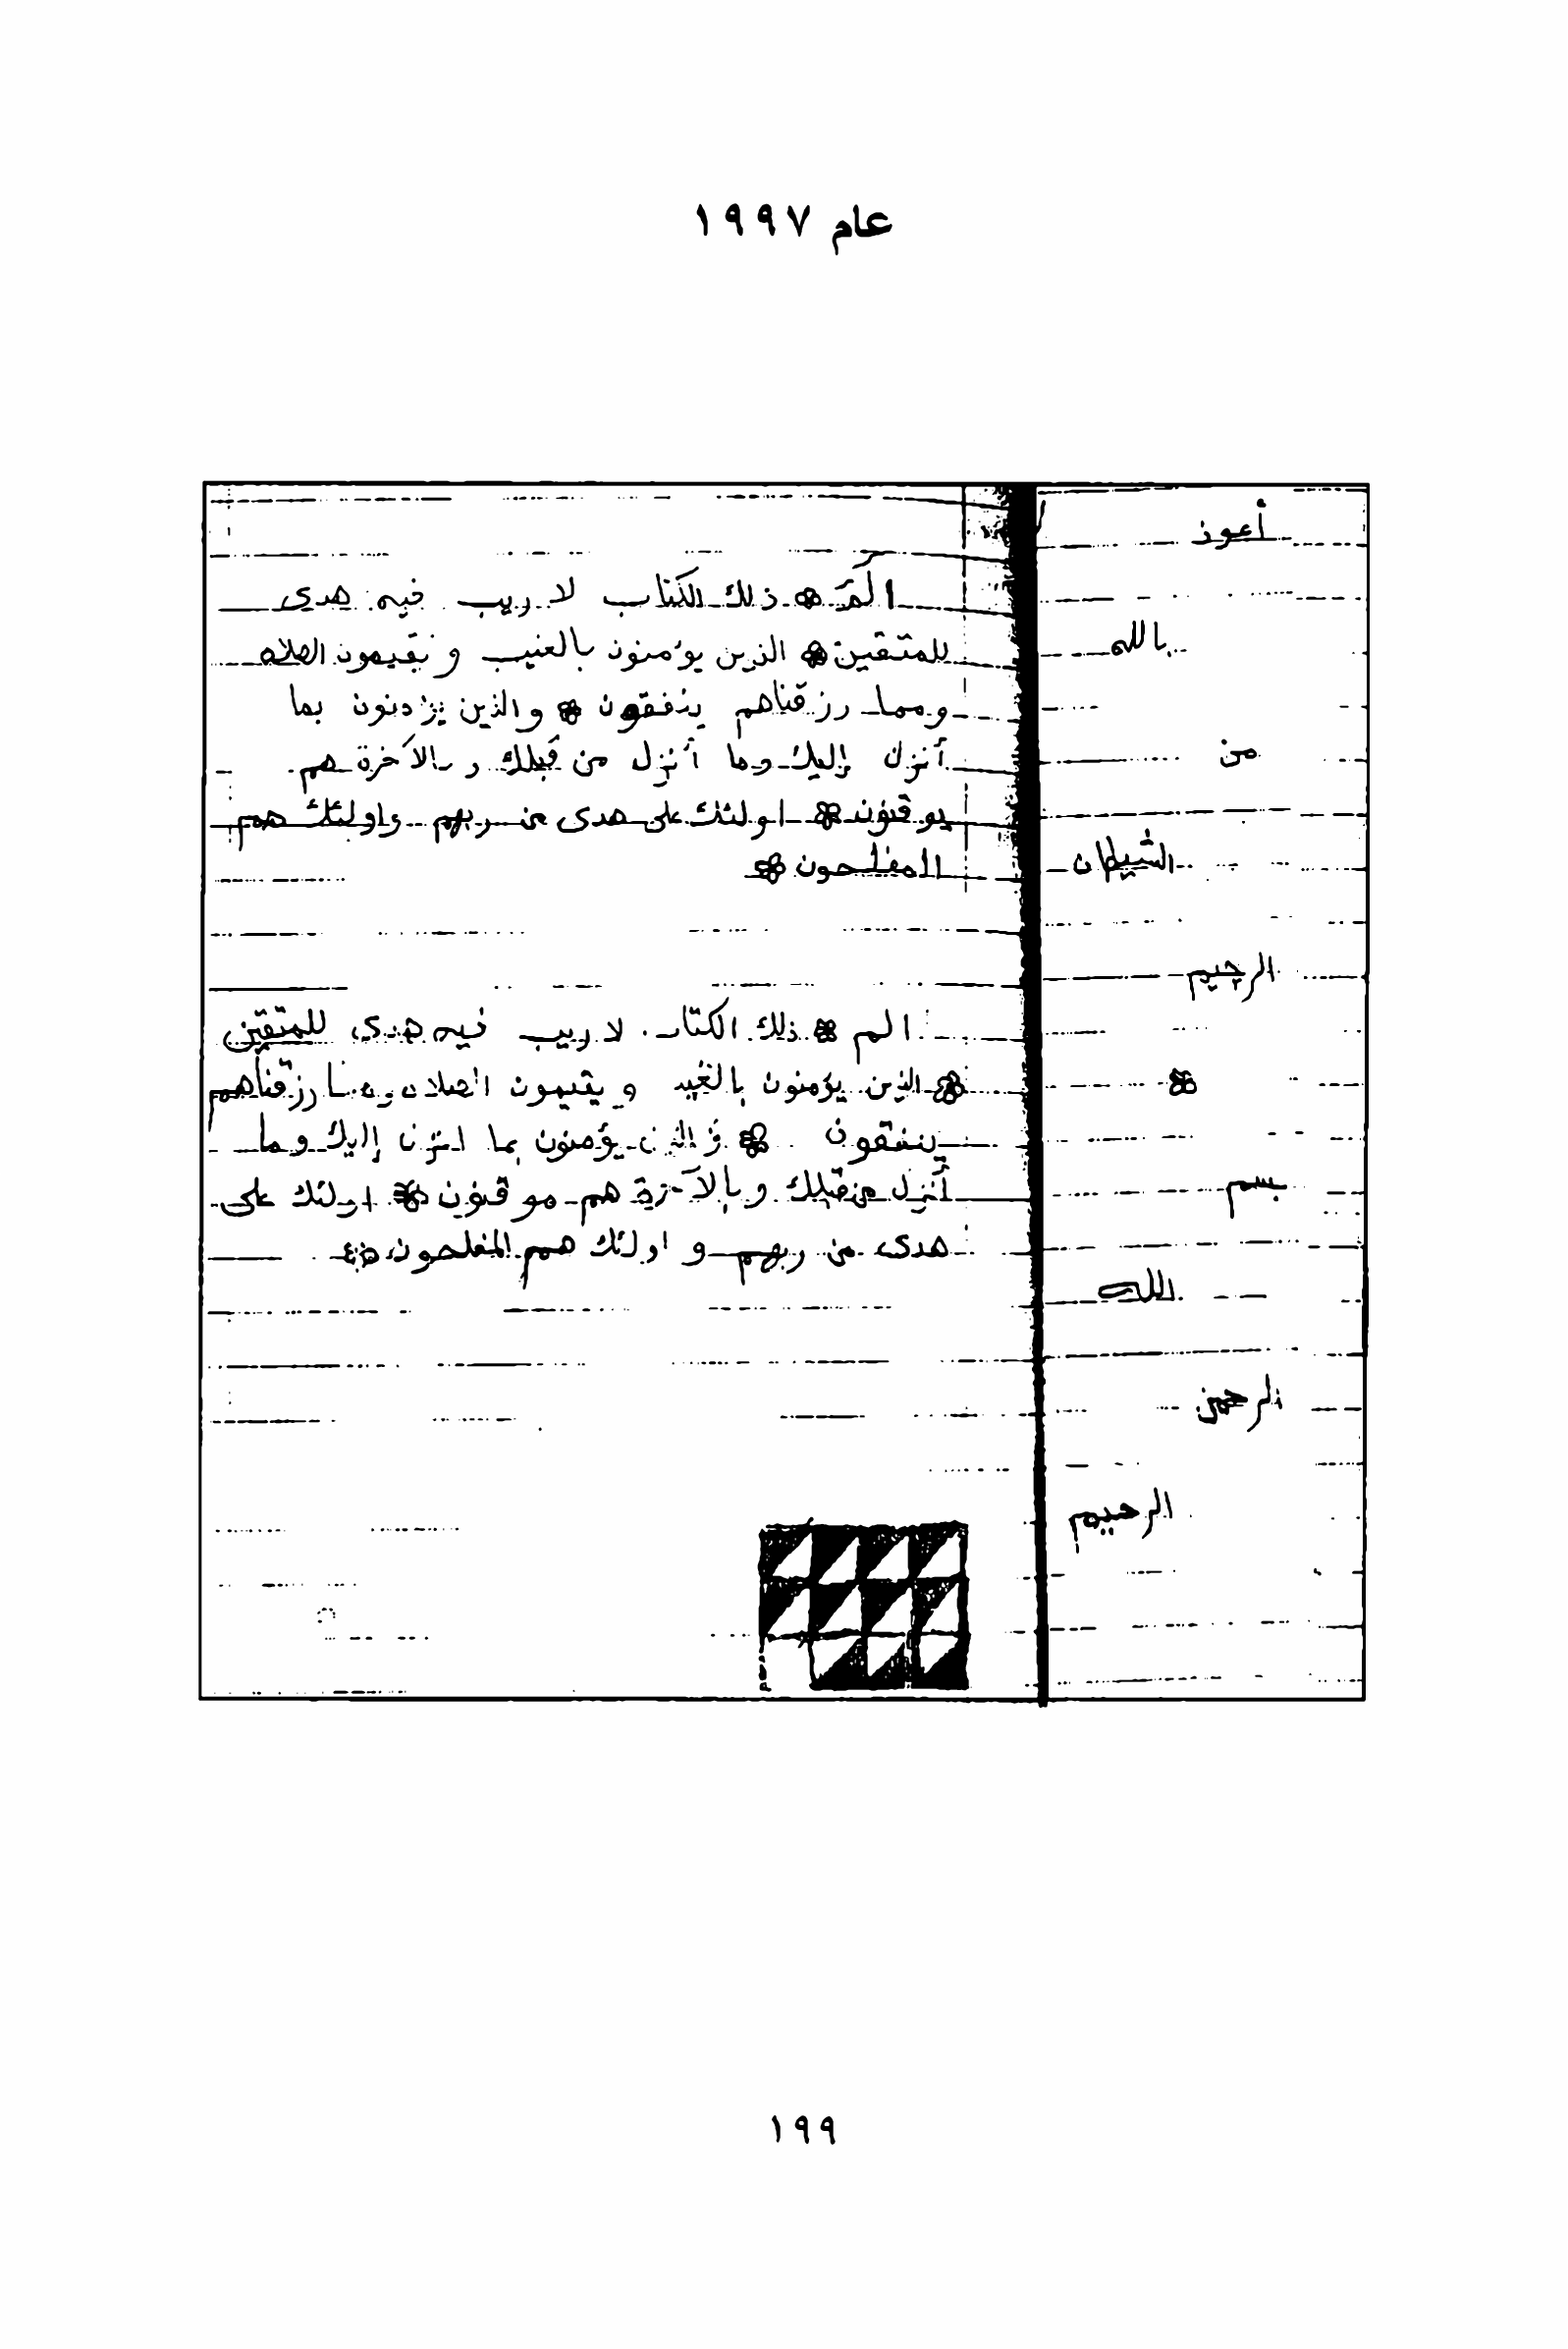 عام ١٩٩٧
أعوذ
بالله
من
الشيطان
الرجيم
بسم
الله
الرحمن
الرحيم
الم ذلك الكتاب لا ريب فيه هدى
للمتقين الذين يؤمنون بالغيب و يقيمون الصلاه
ومما رزقناهم ينفقون والذين يؤمنون بما
أنزل إليك وما أنزل من قبلك و بالآخرة هم
يوقنون اولئك على هدى من ربهم واولئك هم
المفلحون
الم ذلك الكتاب لا ريب فيه هدى للمتقين
الذين يؤمنون بالغيب و يقيمون الصلاه رزقناهم
ينفقون و الذين يؤمنون بما انزل إليك وما
أنزل من قبلك و بالآخرة هم موقنون اولئك على
هدى من ربهم و اولئك هم المفلحون
١٩٩